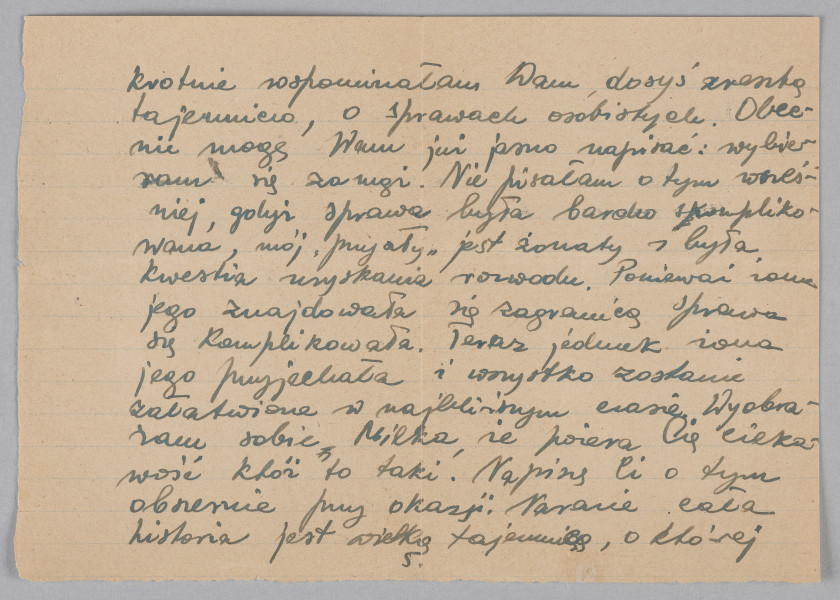 krotnie wspominałam Wam, dosyć zresztą
tajemniczo, o sprawach osobistych. Obec-
nie mogę Wam już jasno napisać: wybie-
ram się za mąż. Nie pisałam o tym wcześ-
niej, gdyż sprawa była bardzo skompliko-
wana, mój „przyszły” jest żonaty i była
kwestia uzyskania rozwodu. Ponieważ żona
jego znajdowała się zagranicą sprawa
się komplikowała. Teraz jednak żona
jego przyjechała i wszystko zostanie
załatwione w najbliższym czasie. Wyobra-
żam sobie, Milka, że pożera Cię cieka-
wość któż to taki. Napiszę Ci o tym
obszernie przy okazji. Narazie cała
historia jest wielką tajemnicą, o której
5.